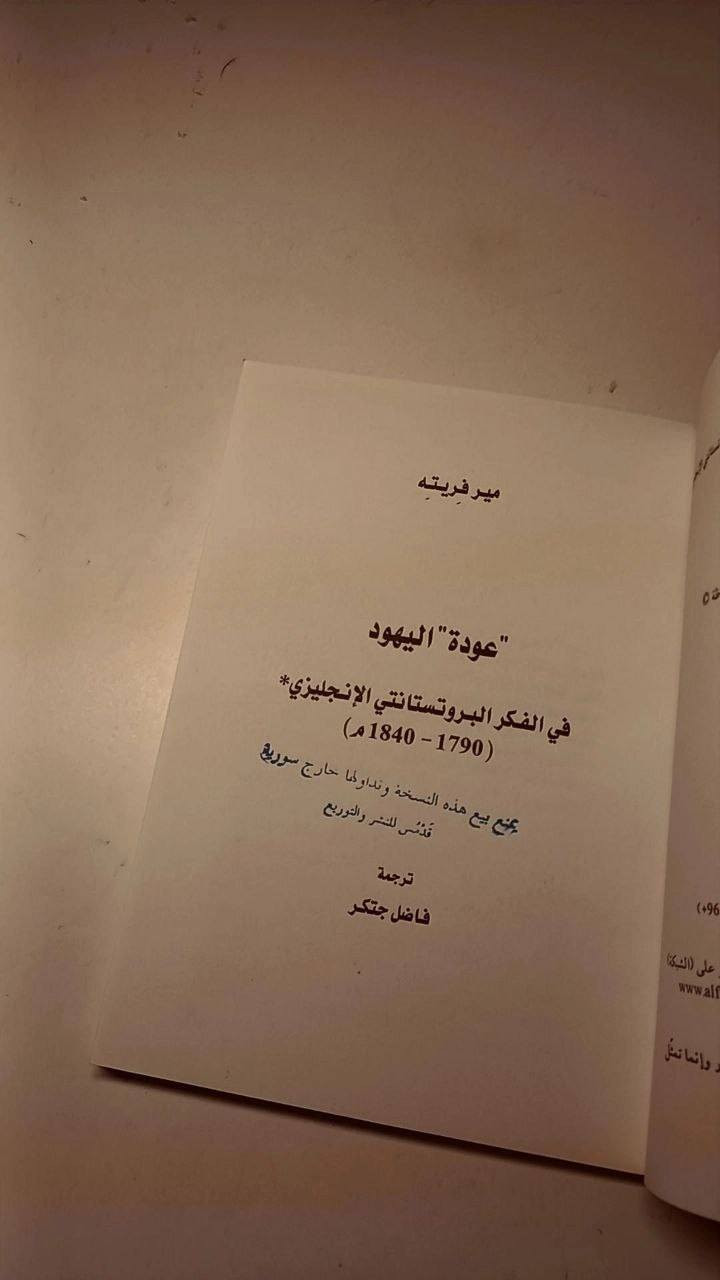 مير فِريتـهِ
"عودة" اليهود
في الفكر البروتستانتي الإنجليزي*
(1790 – 1840 م)
يمنع بيع هذه النسخة وتداولها خارج سورية
قَدْمُس للنشر والتوزيع
ترجمة
فاضل جتكر
(+96
على (الشبكة)
www.alf
وإنما تمثّل